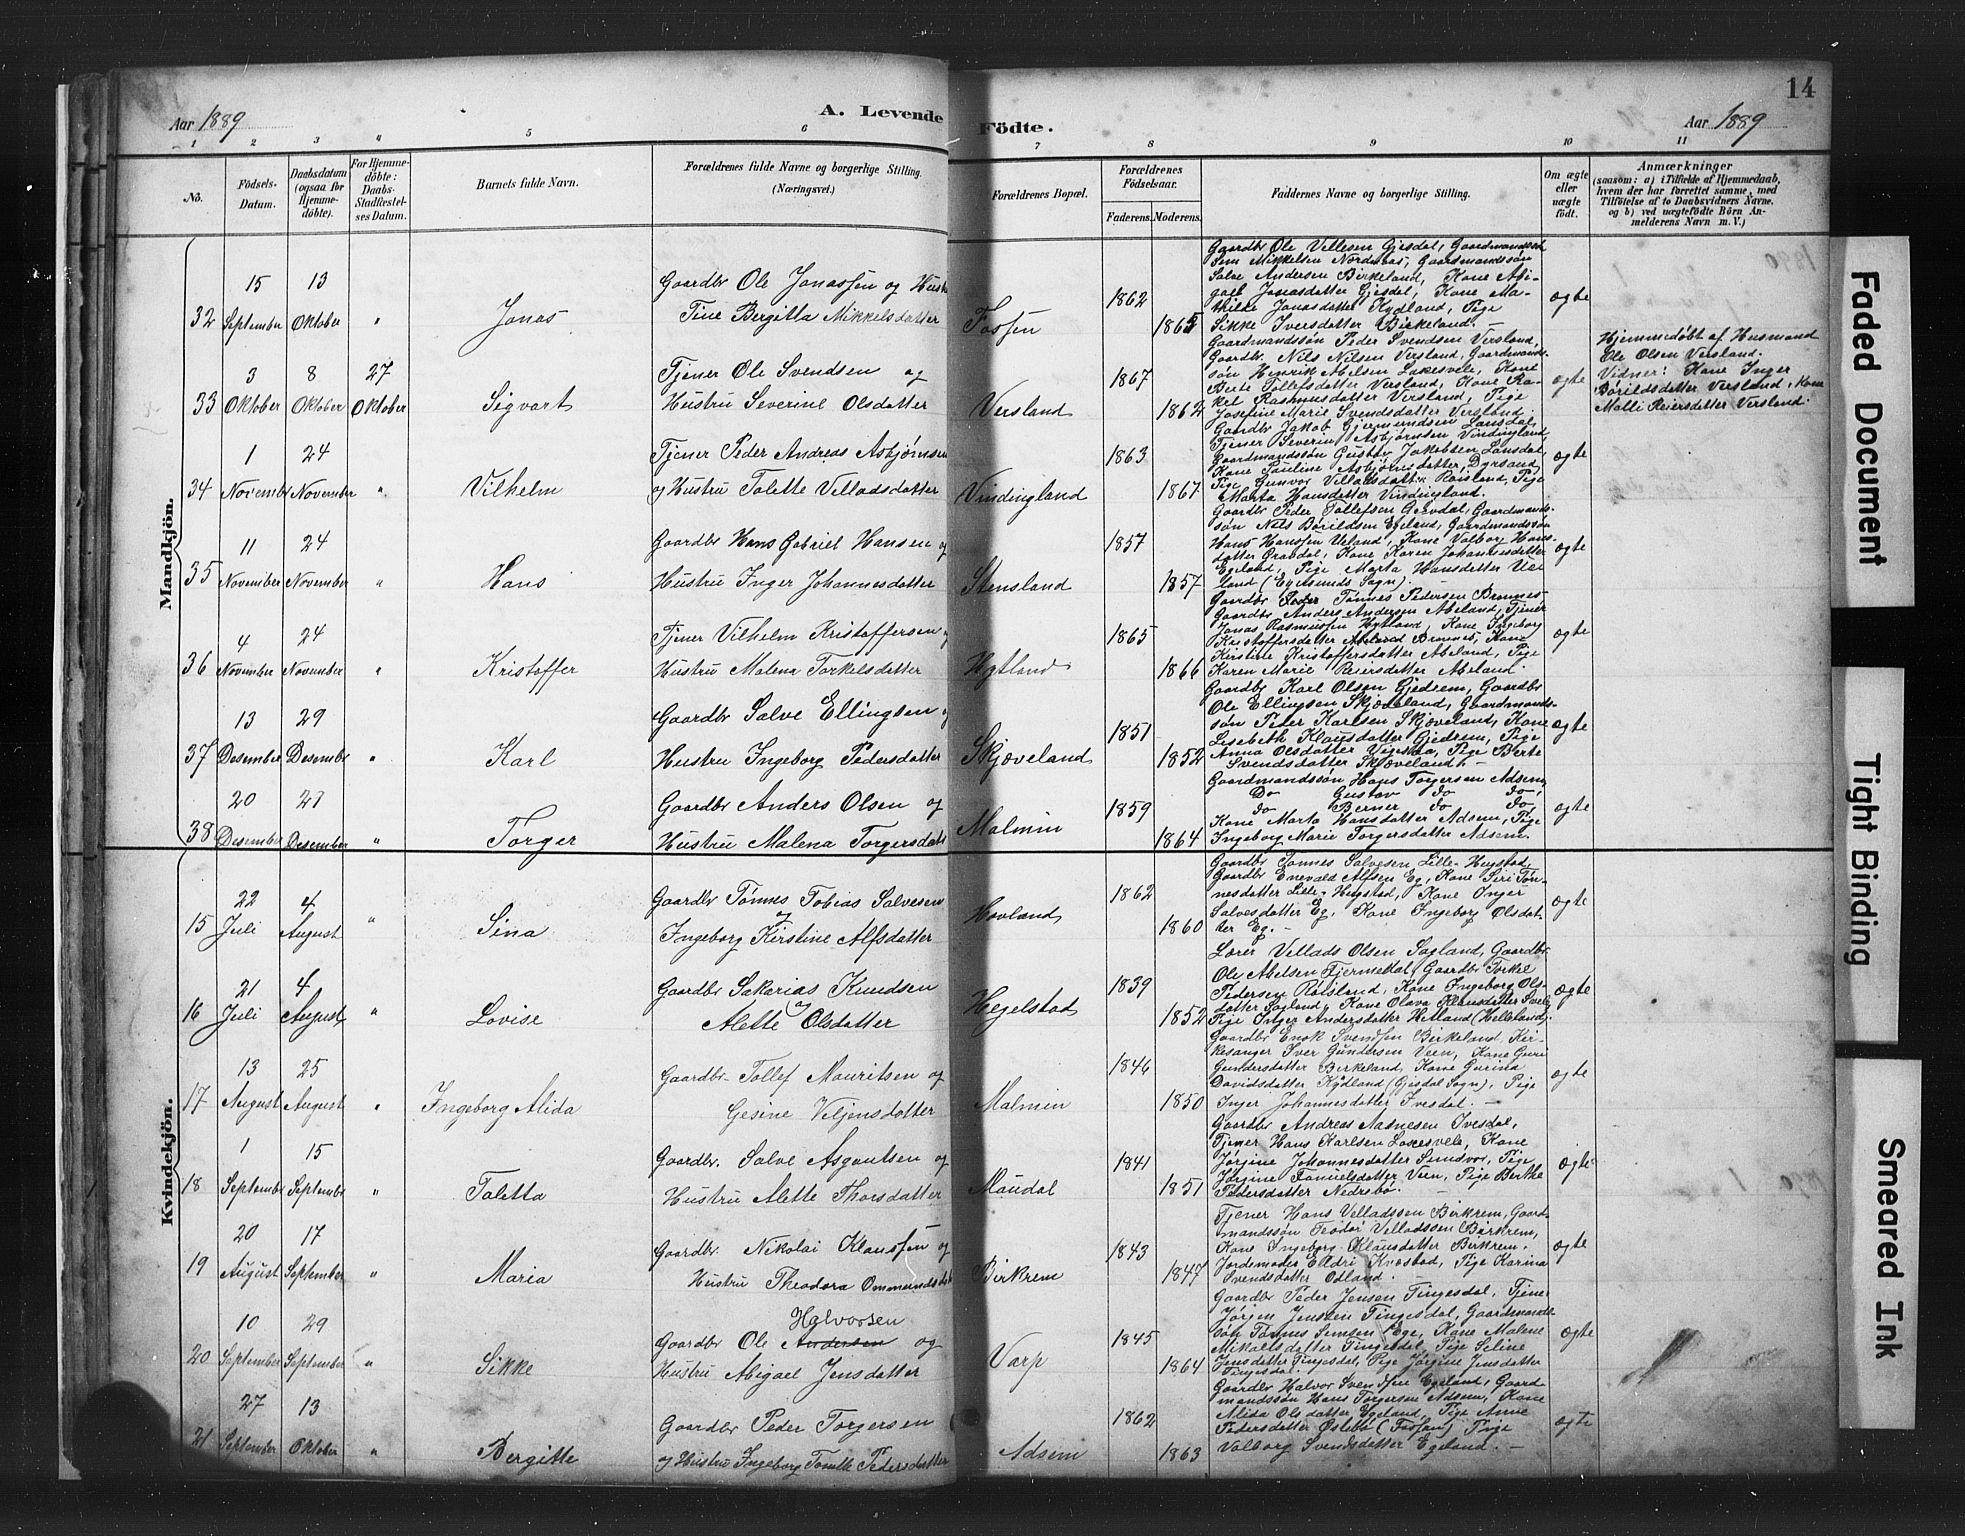 Aar 1889
A. Levende Födte.
Aar 1889
14
1 2 3 " 5 6 7 8 9 10 11
No.
Födsels-Datum.
Daabsdatum (ogsaa for Hjemmedöbte).
For Hjemmedöbte: Daabs-Stadfæstelses Datum.
Barnets fulde Navn.
Forældrenes fulde Navne og borgerlige Stilling. (Næringsvei.)
Forældrenes Bopæl.
Forældrenes Födselsaar.
Faderens. Moderens.
Faddernes Navne og borgerlige Stilling.
Om ægte eller uægte födt.
Anmærkninger
(saasom: a) i Tilfælde af Hjemmedaab, hvem der har forrettet samme, med Tilföielse af to Daabsvidners Navne, og b) ved uægtefödte Börn Anmelderens Navn m. V.)
Mandkjön.
32 15 September 13 Oktober " Jonas
Gaardbr Ole Jonassen og Hustru
Tine Bergitta Mikkelsdatter
Fossen 1862 1865
Gaardbr Ole Villesen Gjesdal, Gaardmandssøn
Salve Andersen Birkeland, Kone Abigael Jonasdatter Gjesdal, Kone Mathilde Jonasdatter Kydland, Pige
Sikke Iversdatter Birkeland.
ægte
33 3 Oktober 8 Oktober 27 Oktober Sigvart
Tjener Ole Svendsen og
Hustru Severine Olsdatter
Versland 1867 1862
Gaardmandssøn Peder Svendsen Versland,
Gaardbr. Nils Nilsen Versland, Gaardmandssøn Henrik Abelsen Lakesvele, Kone
Berte Tollefsdatter Versland, Kone Rakel Rasmusdatter Versland, Pige
Josefine Marie Svendsdatter Versland.
ægte
Hjemmedøbt af Husmand
Ole Olsen Versland.
Vidner: Kone Inger
Børildsdatter Versland, Kone
Malli Reiersdatter Versland.
34 1 November 24 November " Vilhelm
Tjener Peder Andreas Asbjørnsen
og Hustru Talette Velladsdatter
Vindingland 1863 1867
Gaardbr Jakob Gjermundsen Lansdal,
Tjener Severin Asbjørnsen Vindingland,
Gaardmandssøn Gustav Jakobsen Lansdal,
Kone Pauline Asbjørnsdatter, Dyrsand,
Pige Gunvor Villadsdatter Røisland, Pige
Marta Hansdatter Vindingland.
ægte
35 11 November 24 November " Hans
Gaardbr Hans Gabriel Hansen og
Hustru Inger Johannesdatter
Stensland 1857 1857
Gaardbr Peder Tollefsen Grøvdal, Gaardmandssøn Nils Børildsen Egeland, Gaardmandssøn
Hans Hanssen Ueland, Kone Valborg Hansdatter Ørsdal, Kone Karen Johannesdatter
Egeland, Pige Marta Hansdatter Ueland (Egersunds Sogn).
ægte
36 4 November 24 November " Kristoffer
Tjener Vilhelm Kristoffersen og
Hustru Malena Torkelsdatter
Hytland 1865 1866
Gaardbr Tønnes Pedersen Bramnes,
Gaardbr Anders Andersen Abeland, Tjener
Jonas Rasmussen Hytland, Kone Ingeborg
Kristoffersdatter Bramnes, Kone
Kirstine Kristoffersdatter Abeland, Pige
Karen Marie Reiersdatter Abeland.
ægte
37 13 Desember 29 Desember " Karl
Gaardbr Salve Ellingsen og
Hustru Ingeborg Pedersdatter
Skjæveland 1851 1852
Gaardbr Karl Olsen Gjedrem, Gaardbr
Ole Ellingsen Skjæveland, Gaardmandssøn Peder Karlsen Skjæveland, Kone
Lisebeth Klausdatter Gjedrem, Pige
Anna Olsdatter Vigestad, Pige Berte
Svendsdatter Skjæveland.
ægte
38 20 Desember 27 Desember " Torger
Gaardbr Anders Olsen og
Hustru Malena Torgersdatter
Malmin 1859 1864
Gaardmandssøn Hans Torgersen Adsem,
Do Gustav do do,
do Berner do do,
Kone Marta Hansdatter Adsem, Pige
Ingeborg Marie Torgersdatter Adsem.
ægte
Kvindekjön.
15 22 Juli 4 August " Sina
Gaardbr Tønnes Tobias Salvesen
og
Ingeborg Kirstine Alfsdatter
Hovland 1862 1860
Gaardbr Tønnes Salvesen Lille-Hegstad,
Gaardbr Enevald Alfsen Eg, Kone Siri Tønnesdatter Lille-Hegstad, Kone Inger
Salvesdatter Eg, Kone Ingeborg Olsdatter Eg.
ægte
16 21 Juli 4 August " Lovise
Gaardbr Sakarias Knudsen
og
Alette Olsdatter
Hegelstad 1839 1852
Lærer Villads Olsen Sagland, Gaardbr
Ole Abelsen Fjermedal, Gaardbr Torkel
Pedersen Røisland, Kone Ingeborg Olsdatter Sagland, Kone Olava Klausdatter
Pige Inger Andersdatter Hetland (Helleland).
ægte
17 13 August 25 August " Ingeborg Alida
Gaardbr. Tollef Mauritsen og
Gesine Viljensdatter
Malmin 1846 1850
Gaardbr Enok Svendsen Birkeland, Kirkesanger Iver Gundersen Veen, Kone Guri
Gundersdatter Birkeland, Kone Gurina
Davidsdatter Kydland (Gjesdal Sogn), Pige
Inger Johannesdatter Ivesdal.
ægte
18 1 September 15 September " Taletta
Gaardbr. Salve Asgautsen og
Hustru Alette Thorsdatter
Maudal 1841 1851
Gaardbr Andreas Aadnesen Ivesdal,
Tjener Hans Karlsen Laksesvele, Kone
Jørgine Johannesdatter Sundvor, Pige
Jørgine Samuelsdatter Veen, Pige Berthe
Pedersdatter Nedrebø.
ægte
19 20 August 17 September " Maria
Gaardbr. Nikolai Klaussen og
Hustru Theodora Ommundsdatter
Birkrem 1843 1847
Tjener Hans Velladssen Birkrem, Gaardmandssøn Teodor Velladssen Birkrem,
Kone Ingeborg Klausdatter Birkrem,
Jordemoder Eldri Kvæstad, Pige Karina
Svendsdatter Odland.
ægte
20 10 September 29 September " Sikke
Halvorsen
Gaardbr Ole Andersen og
Hustru Abigael Jensdatter
Varp 1845 1864
Gaardbr Peder Jensen Tingesdal, Tjener
Jørgen Jensen Tingesdal, Gaardmandssøn Tønnes Simsen Ege, Kone Malene
Mikaelsdatter Tingesdal, Pige Seline
Jensdatter Tingesdal, Pige Jørgine Jensdatter
Tingesdal
ægte
21 27 September 13 Oktober " Bergitte
Gaardbr Peder Torgersen
og Hustru Ingeborg Tomille Pedersdatter
Adsem 1862 1863
Gaardbr Halvor Svendsen Egeland, Gaardmandssøn Hans Torgersen Adsem, Kone
Alida Olsdatter Egeland, Pige Anne
Pedersdatter Oslebø (Fossan) Pige
Valborg Svendsdatter Egeland.
ægte
Faded Document
Tight Binding
Smeared Ink